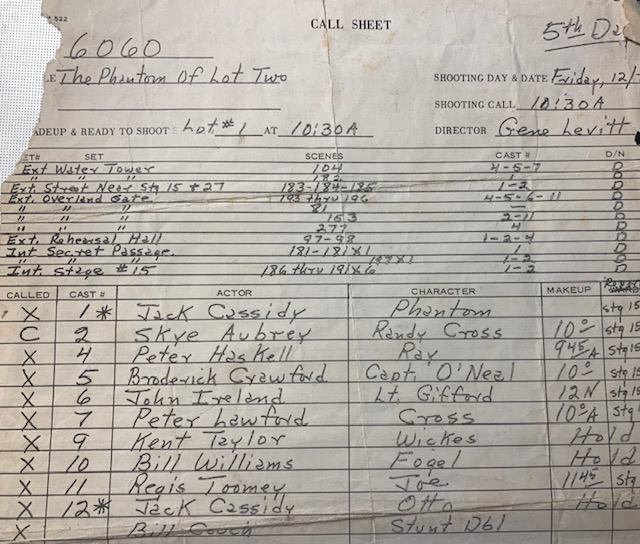 522
CALL SHEET
5th Da
6060
LE The Phantom Of Lot Two
SHOOTING DAY & DATE Friday, 12/
SHOOTING CALL 10:30A
ADEUP & READY TO SHOOT Lot #1 AT 10:30A
DIRECTOR Gene Levitt
ET# SET SCENES CAST # D/N
Ext Water Tower 104 4-5-7 D
" " 182 1 D
Ext. Street Near Stg 15 #27 183-184-185 1-2 D
Ext. Overland Gate. 193 thru 196 4-5-6-11 D
" " " 81 — D
" " " 153 2-11 D
" " " 277 4 D
Ext. Rehearsal Hall 97-98 1-2-4 D
Int Secret Passage. 181-181X1 1 D
" " 197X1 1-2 D
Int. Stage #15 186 thru 191X6 1-2 D
CALLED CAST # ACTOR CHARACTER MAKEUP
X 1* Jack Cassidy Phantom stg 15
C 2 Skye Aubrey Randy Cross 10⁰ stg 15
X 4 Peter Haskell Ray 945A stg 15
X 5 Broderick Crawford Capt. O'Neal 10⁰ stg 15
X 6 John Ireland Lt. Gifford 12N stg 15
X 7 Peter Lawford Cross 10⁰A Stg
X 9 Kent Taylor Wickes Hold
X 10 Bill Williams Fogel Hold
X 11 Regis Toomey Joe 1145 Stg
X 12* Jack Cassidy Otto Hold
X Bill Couch Stunt Dbl